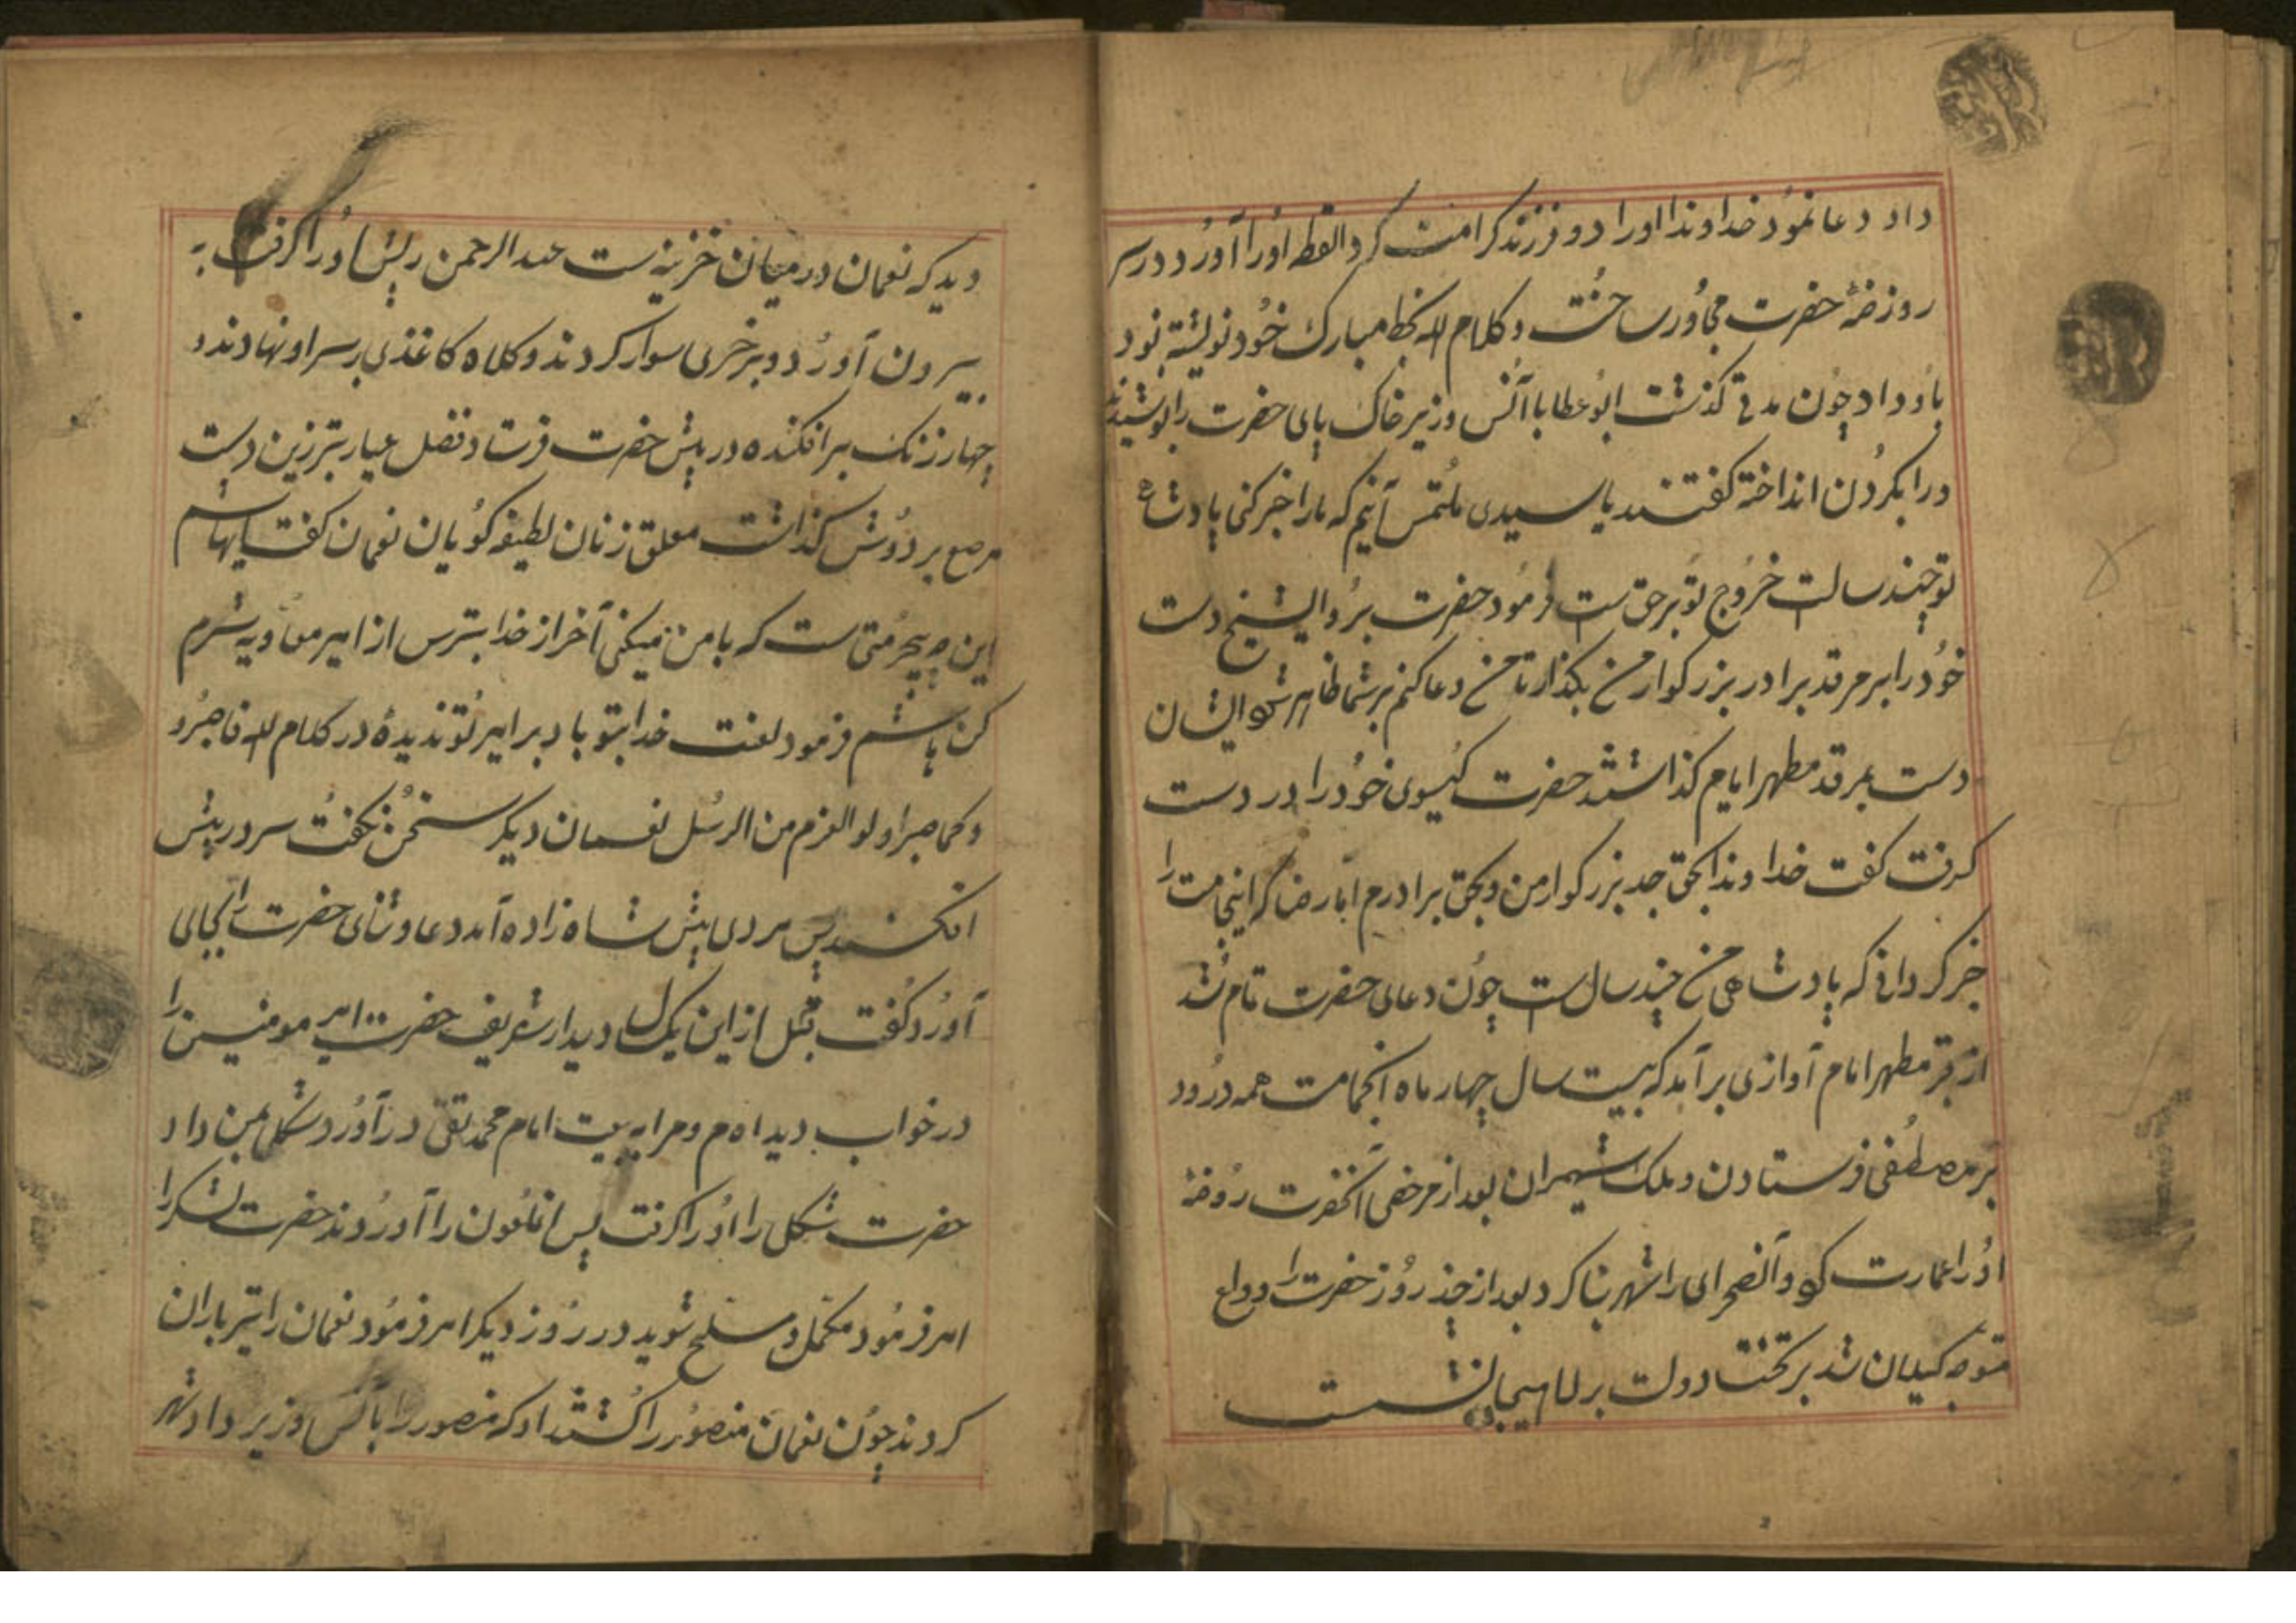 داد دعا نمود خداوندا او را دو فرزند کرامت کرد القطه او را آورد در سر
روزضهٔ حضرت مجاور ساخت و کلام الله بخط مبارک خود نوشته بود
باو داد چون مدتی گذشت ابو عطا با آنس وزیر خاک پای حضرت را بوسیدند
ورا بگردن انداخته گفتند یا سیدی ملتمس آنیم که ما را خبر کنی پادشاهی
تو چند سالست خروج تو بر حق ست فرمود حضرت برو الشیخ دست
خود را بر مرقد برادر بزرگوار من بگذار تا من دعا کنم بر شما ظاهر شود ایشان
دست بمرقد مطهر امام گذاشتند حضرت گیسوی خود را در دست
گرفت گفت خداوندا بحق جد بزرگوار من و بحق برادرم امام رضا که اینجماعت را
خبر گردانی که پادشاهی من چند سال ست چون دعای حضرت تمام شد
از قبر مطهر امام آوازی برآمد که بیست سال چهار ماه آنجماعت همه درود
بر مصطفی فرستادند و ملک شهران بعد از مرخصی آنحضرت روضهٔ
او را عمارت کرد و آنصحرای را شهر بنا کرد بعد از چند روز حضرت را وداع
متوجه گیلان شد بر تخت دولت بر لاهیجان نشست
دید که نعمان در میان خزینه ست عبدالرحمن ریش او را گرفت به
بیرون آورد و بر خری سوار کردند و کلاه کاغذی بر سر او نهادند و
چهار زنگ بر افکنده در پیش حضرت فرستاد فضل عیار تبرزین دست
مرصع بر دوش گذاشت معلق زنان لطیفه گویان نعمان گفت یا هاشم
این چه بیحرمتی ست که با من میکنی آخر از خدا بترس از امیر معاویه شرم
کن هاشم فرمود لعنت خدا بتو باد بر امیر تو ندیدهٔ در کلام الله فاصبر و
و کما صبر اولو العزم من الرسل نعمان دیگر سخن نگفت سر در پیش
افکند پس مردی پیش شاه زاده آمد دعا و ثنای حضرت را بجای
آورد گفت قبل از این یک سال دیدار شریف حضرت امیر مومنین را
در خواب دیده ام و مرا به بیعت امام محمد تقی در آورد شکلی بمن داد
حضرت شکلی را او را گرفت پس انملعون را آوردند حضرت لشکر را
امر فرمود مکمل و مسلح شوید در روز دیگر امر فرمود نعمان را تیر باران
کردند چون نعمان منصور را کشتند او که منصور را با آنس وزیر داد شهر